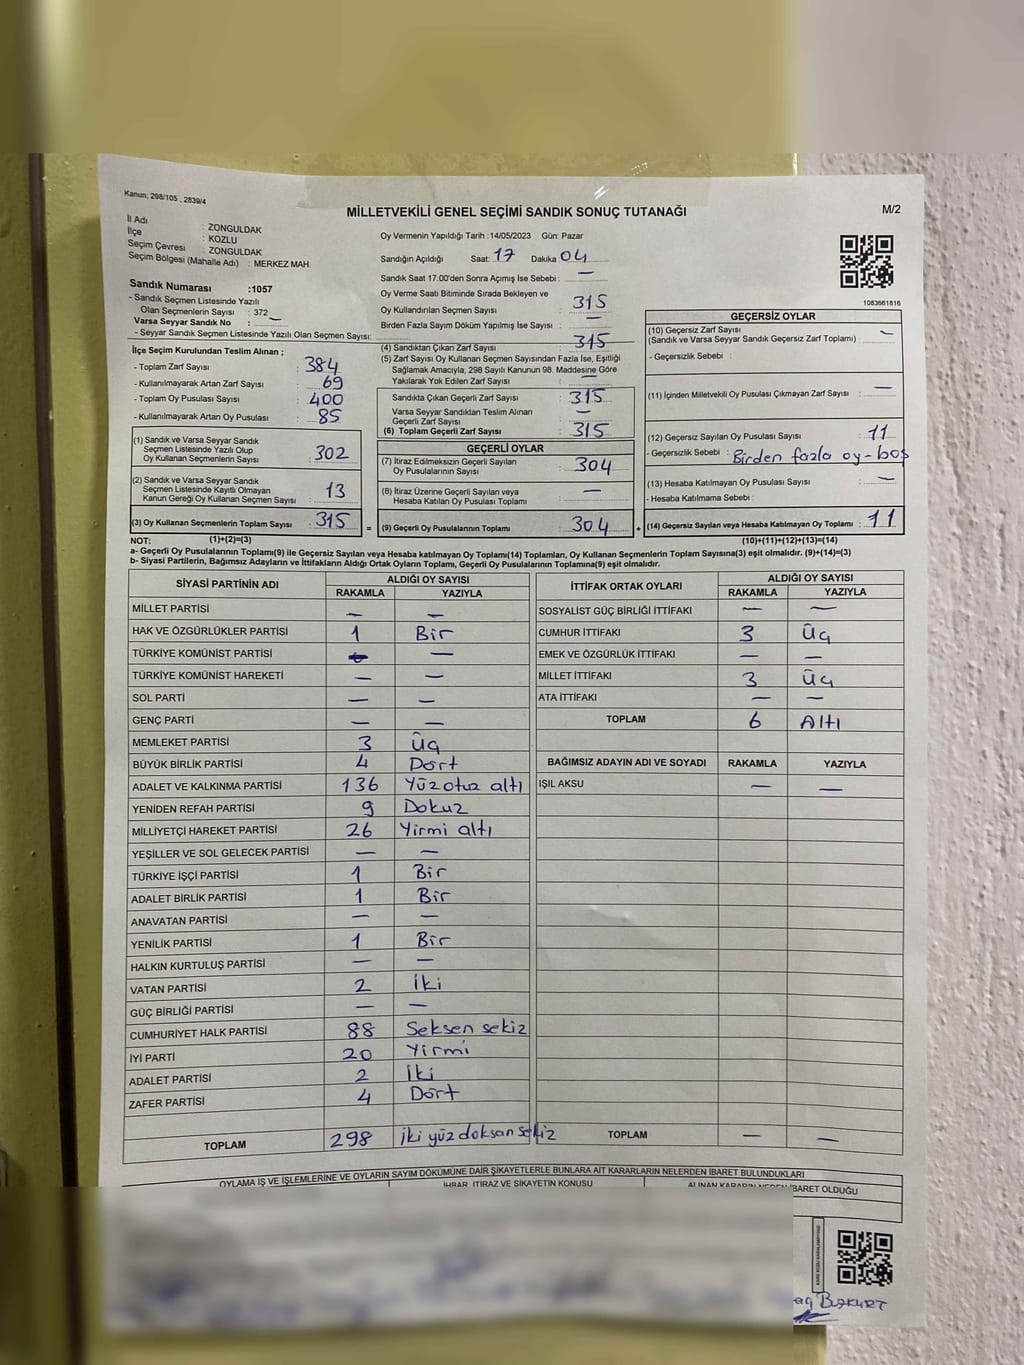 Kanun; 298/105 , 2839/4
MİLLETVEKİLİ GENEL SEÇİMİ SANDIK SONUÇ TUTANAĞI
M/2
İl Adı : ZONGULDAK
İlçe : KOZLU
Seçim Çevresi : ZONGULDAK
Seçim Bölgesi (Mahalle Adı) : MERKEZ MAH.
Sandık Numarası :1057
- Sandık Seçmen Listesinde Yazılı
Olan Seçmenlerin Sayısı : 372
Varsa Seyyar Sandık No : —
- Seyyar Sandık Seçmen Listesinde Yazılı Olan Seçmen Sayısı:
İlçe Seçim Kurulundan Teslim Alınan ;
- Toplam Zarf Sayısı : 384
- Kullanılmayarak Artan Zarf Sayısı : 69
- Toplam Oy Pusulası Sayısı : 400
- Kullanılmayarak Artan Oy Pusulası : 85
(1) Sandık ve Varsa Seyyar Sandık
Seçmen Listesinde Yazılı Olup
Oy Kullanan Seçmenlerin Sayısı : 302
(2) Sandık ve Varsa Seyyar Sandık
Seçmen Listesinde Kayıtlı Olmayan
Kanun Gereği Oy Kullanan Seçmen Sayısı : 13
(3) Oy Kullanan Seçmenlerin Toplam Sayısı : 315
Oy Vermenin Yapıldığı Tarih :14/05/2023 Gün: Pazar
Sandığın Açıldığı Saat: 17 Dakika 04
Sandık Saat 17:00'den Sonra Açımış İse Sebebi : —
Oy Verme Saati Bitiminde Sırada Bekleyen ve
Oy Kullandırılan Seçmen Sayısı : 315
Birden Fazla Sayım Döküm Yapılmış İse Sayısı : —
(4) Sandıktan Çıkan Zarf Sayısı : 315
(5) Zarf Sayısı Oy Kullanan Seçmen Sayısından Fazla İse, Eşitliği
Sağlamak Amacıyla, 298 Sayılı Kanunun 98. Maddesine Göre
Yakılarak Yok Edilen Zarf Sayısı : —
Sandıkta Çıkan Geçerli Zarf Sayısı : 315
Varsa Seyyar Sandıktan Teslim Alınan
Geçerli Zarf Sayısı : —
(6) Toplam Geçerli Zarf Sayısı : 315
GEÇERLİ OYLAR
(7) İtiraz Edilmeksizin Geçerli Sayılan
Oy Pusulalarının Sayısı : 304
(8) İtiraz Üzerine Geçerli Sayılan veya
Hesaba Katılan Oy Pusulası Toplamı : —
= (9) Geçerli Oy Pusulalarının Toplamı : 304 +
1083661816
GEÇERSİZ OYLAR
(10) Geçersiz Zarf Sayısı
(Sandık ve Varsa Seyyar Sandık Geçersiz Zarf Toplamı) : —
- Geçersizlik Sebebi :
(11) İçinden Milletvekili Oy Pusulası Çıkmayan Zarf Sayısı : —
(12) Geçersiz Sayılan Oy Pusulası Sayısı : 11
- Geçersizlik Sebebi : Birden fazla oy-boş
(13) Hesaba Katılmayan Oy Pusulası Sayısı : —
- Hesaba Katılmama Sebebi :
(14) Geçersiz Sayılan veya Hesaba Katılmayan Oy Toplamı : 11
NOT: (1)+(2)=(3) (10)+(11)+(12)+(13)=(14)
a- Geçerli Oy Pusulaları Toplamı(9) ile Geçersiz Sayılan veya Hesaba katılmayan Oy Toplamı(14) Toplamları, Oy Kullanan Seçmenlerin Toplam Sayısına(3) eşit olmalıdır. (9)+(14)=(3)
b- Siyasi Partilerin, Bağımsız Adayların ve İttifakların Aldığı Ortak Oyların Toplamı, Geçerli Oy Pusulalarının Toplamına(9) eşit olmalıdır.
SİYASİ PARTİNİN ADI ALDIĞI OY SAYISI
RAKAMLA YAZIYLA
MİLLET PARTİSİ — —
HAK VE ÖZGÜRLÜKLER PARTİSİ 1 Bir
TÜRKİYE KOMÜNİST PARTİSİ — —
TÜRKİYE KOMÜNİST HAREKETİ — —
SOL PARTİ — —
GENÇ PARTİ — —
MEMLEKET PARTİSİ 3 Üç
BÜYÜK BİRLİK PARTİSİ 4 Dört
ADALET VE KALKINMA PARTİSİ 136 Yüz otuz altı
YENİDEN REFAH PARTİSİ 9 Dokuz
MİLLİYETÇİ HAREKET PARTİSİ 26 Yirmi altı
YEŞİLLER VE SOL GELECEK PARTİSİ — —
TÜRKİYE İŞÇİ PARTİSİ 1 Bir
ADALET BİRLİK PARTİSİ 1 Bir
ANAVATAN PARTİSİ — —
YENİLİK PARTİSİ 1 Bir
HALKIN KURTULUŞ PARTİSİ — —
VATAN PARTİSİ 2 İki
GÜÇ BİRLİĞİ PARTİSİ — —
CUMHURİYET HALK PARTİSİ 88 Seksen sekiz
İYİ PARTİ 20 Yirmi
ADALET PARTİSİ 2 İki
ZAFER PARTİSİ 4 Dört
TOPLAM 298 iki yüz doksan sekiz
İTTİFAK ORTAK OYLARI ALDIĞI OY SAYISI
RAKAMLA YAZIYLA
SOSYALİST GÜÇ BİRLİĞİ İTTİFAKI — —
CUMHUR İTTİFAKI 3 Üç
EMEK VE ÖZGÜRLÜK İTTİFAKI — —
MİLLET İTTİFAKI 3 Üç
ATA İTTİFAKI — —
TOPLAM 6 Altı
BAĞIMSIZ ADAYIN ADI VE SOYADI RAKAMLA YAZIYLA
IŞIL AKSU — —
TOPLAM — —
OYLAMA İŞ VE İŞLEMLERİNE VE OYLARIN SAYIM DÖKÜMÜNE DAİR ŞİKAYETLERLE BUNLARA AİT KARARLARIN NELERDEN İBARET BULUNDUKLARI
İHBAR, İTİRAZ VE ŞİKAYETİN KONUSU ALINAN KARARIN NEDEN İBARET OLDUĞU